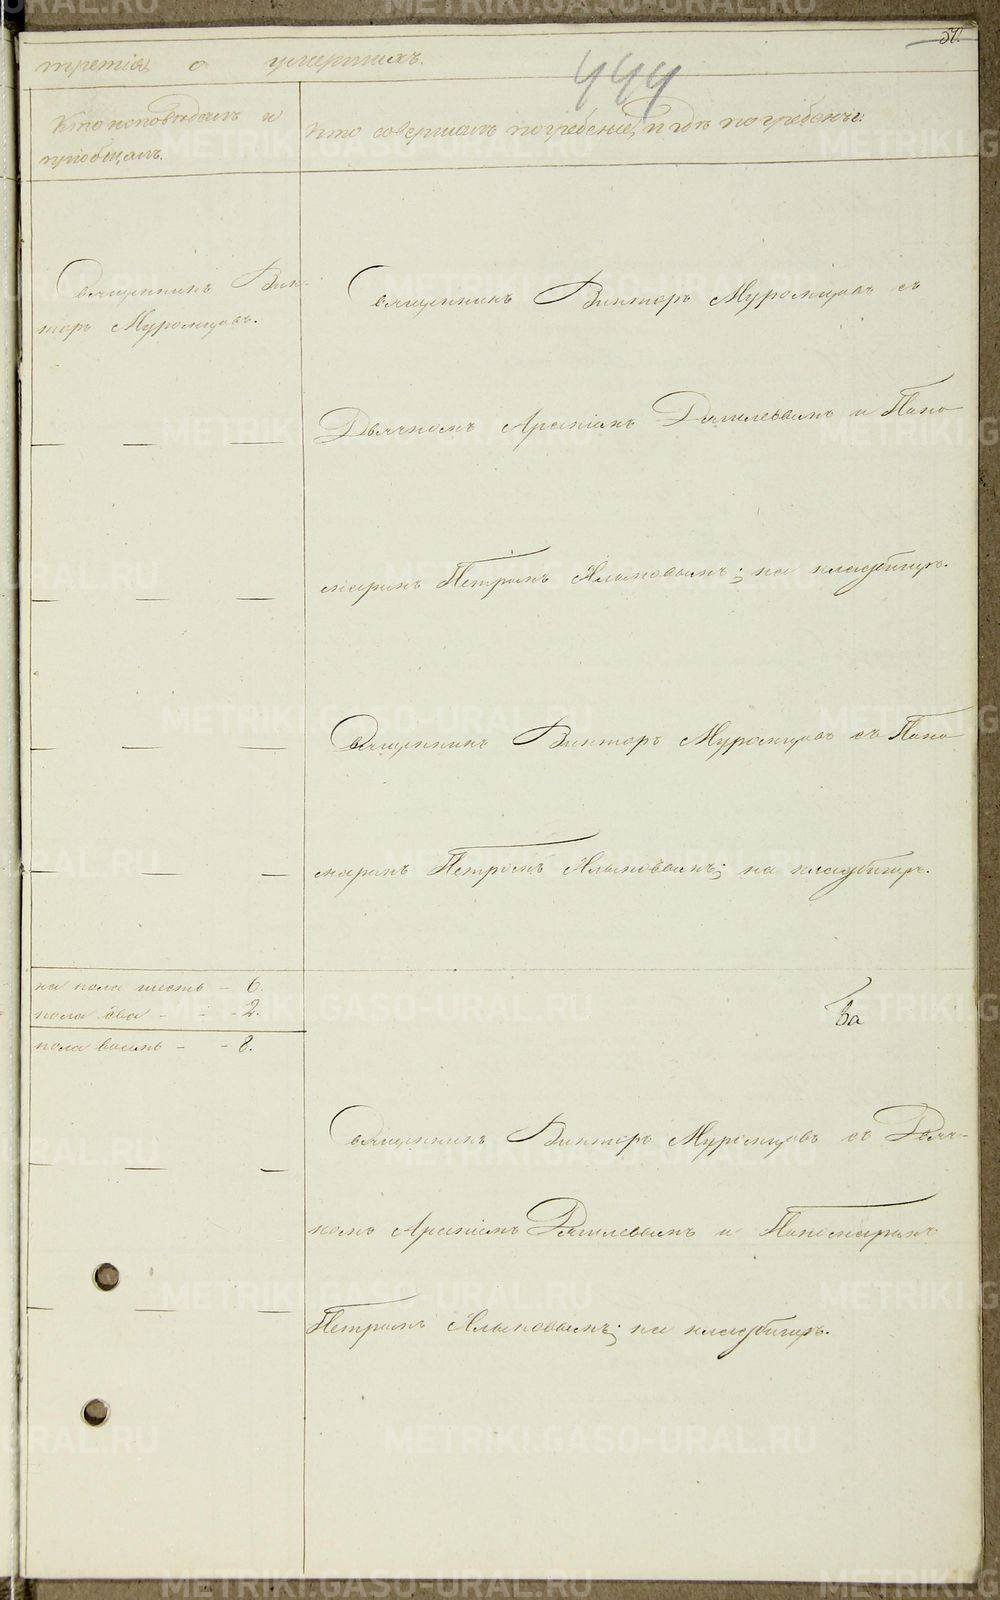 50.
444
третія о умершихъ.
Кто исповѣдалъ и
пріобщалъ.
Кто совершалъ погребеніе, и гдѣ погребены.
Священникъ Вик-
торъ Муромцовъ.
Священникъ Викторъ Муромцовъ съ
Дьячкомъ Арсеніемъ и Поно
маремъ Петромъ на кладбищѣ.
Священникъ Викторъ Муромцовъ съ Поно
маремъ Петромъ на кладбищѣ.
на пола шесть - 6.
пола два - - - 2.
пола восемь - - 8.
Священникъ Викторъ Муромцовъ съ Дьяч-
комъ Арсеніемъ и Пономаремъ
Петромъ на кладбищѣ.
METRIKI.GASO-URAL.RU